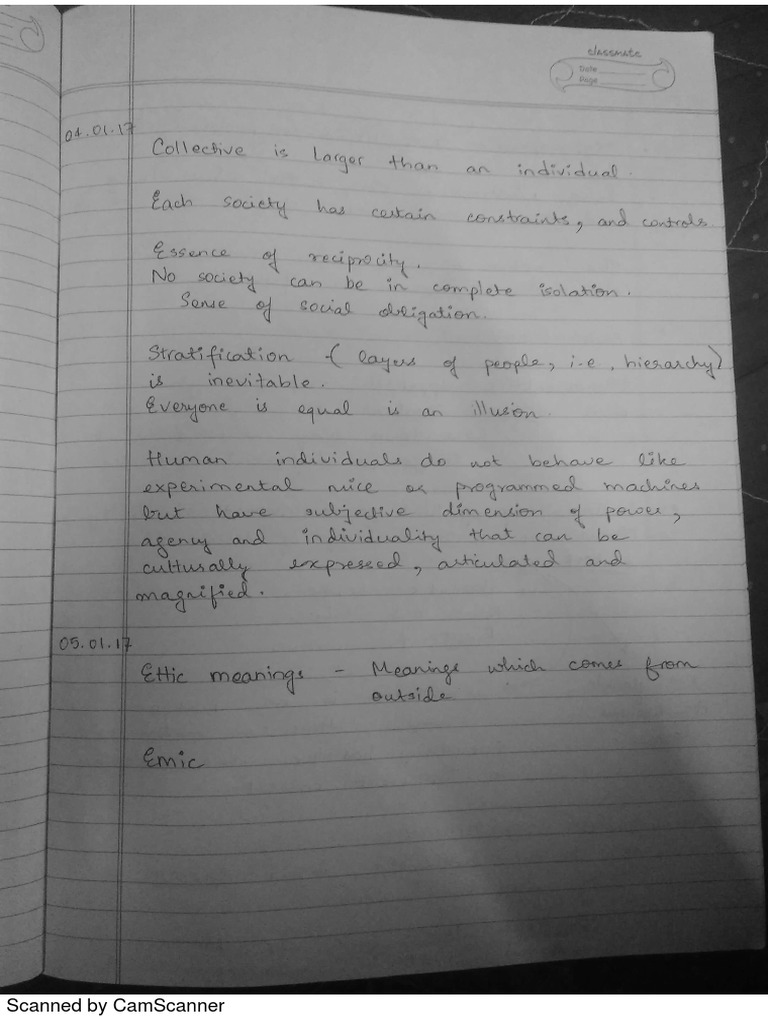 classmate
Date
Page
04.01.17
Collective is larger than an individual.
Each society has certain constraints, and controls
Essence of reciprocity.
No society can be in complete isolation.
Sense of social obligation.
Stratification -( layers of people, i-e, hierarchy)
is inevitable.
Everyone is equal is an illusion.
Human individuals do not behave like
experimental mice or programmed machines
but have subjective dimension of power,
agency and individuality that can be
culturally expressed, articulated and
magnified.
05.01.17
Ettic meanings - Meanings which comes from
outside
Emic
Scanned by CamScanner